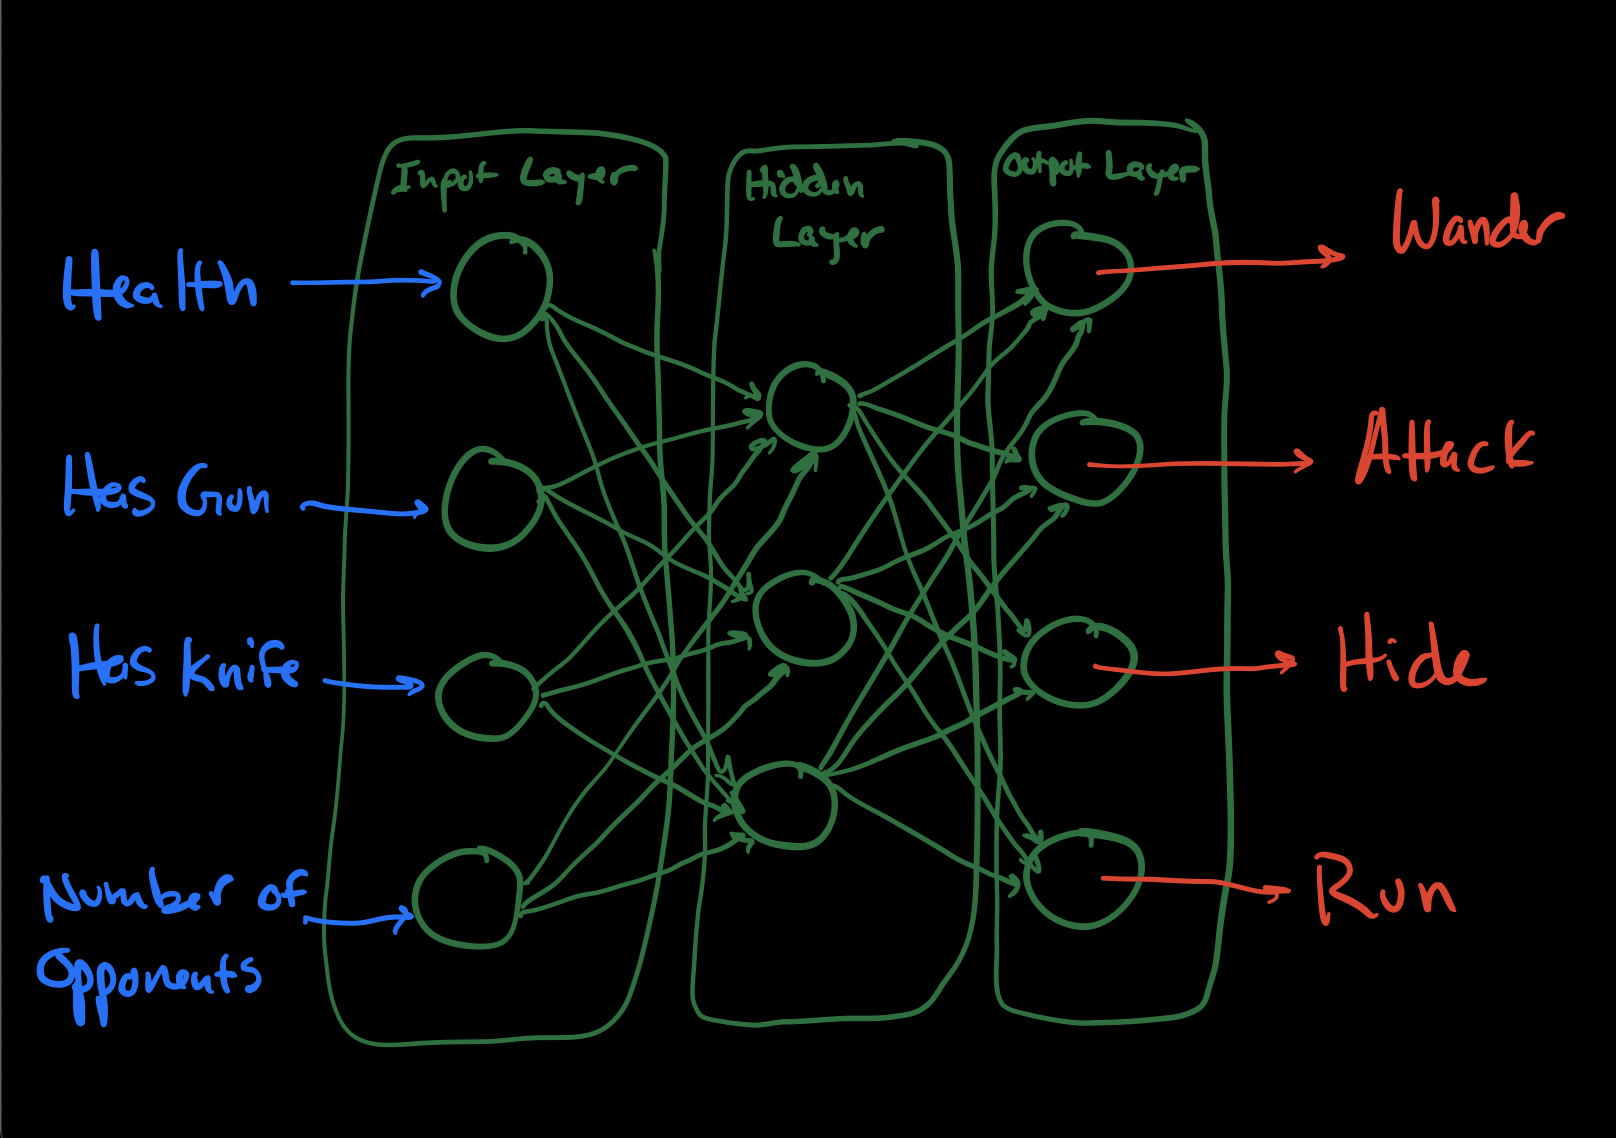 Input Layer
Hidden
Layer
Output Layer
Health
Has Gun
Has Knife
Number of
Opponents
Wander
Attack
Hide
Run